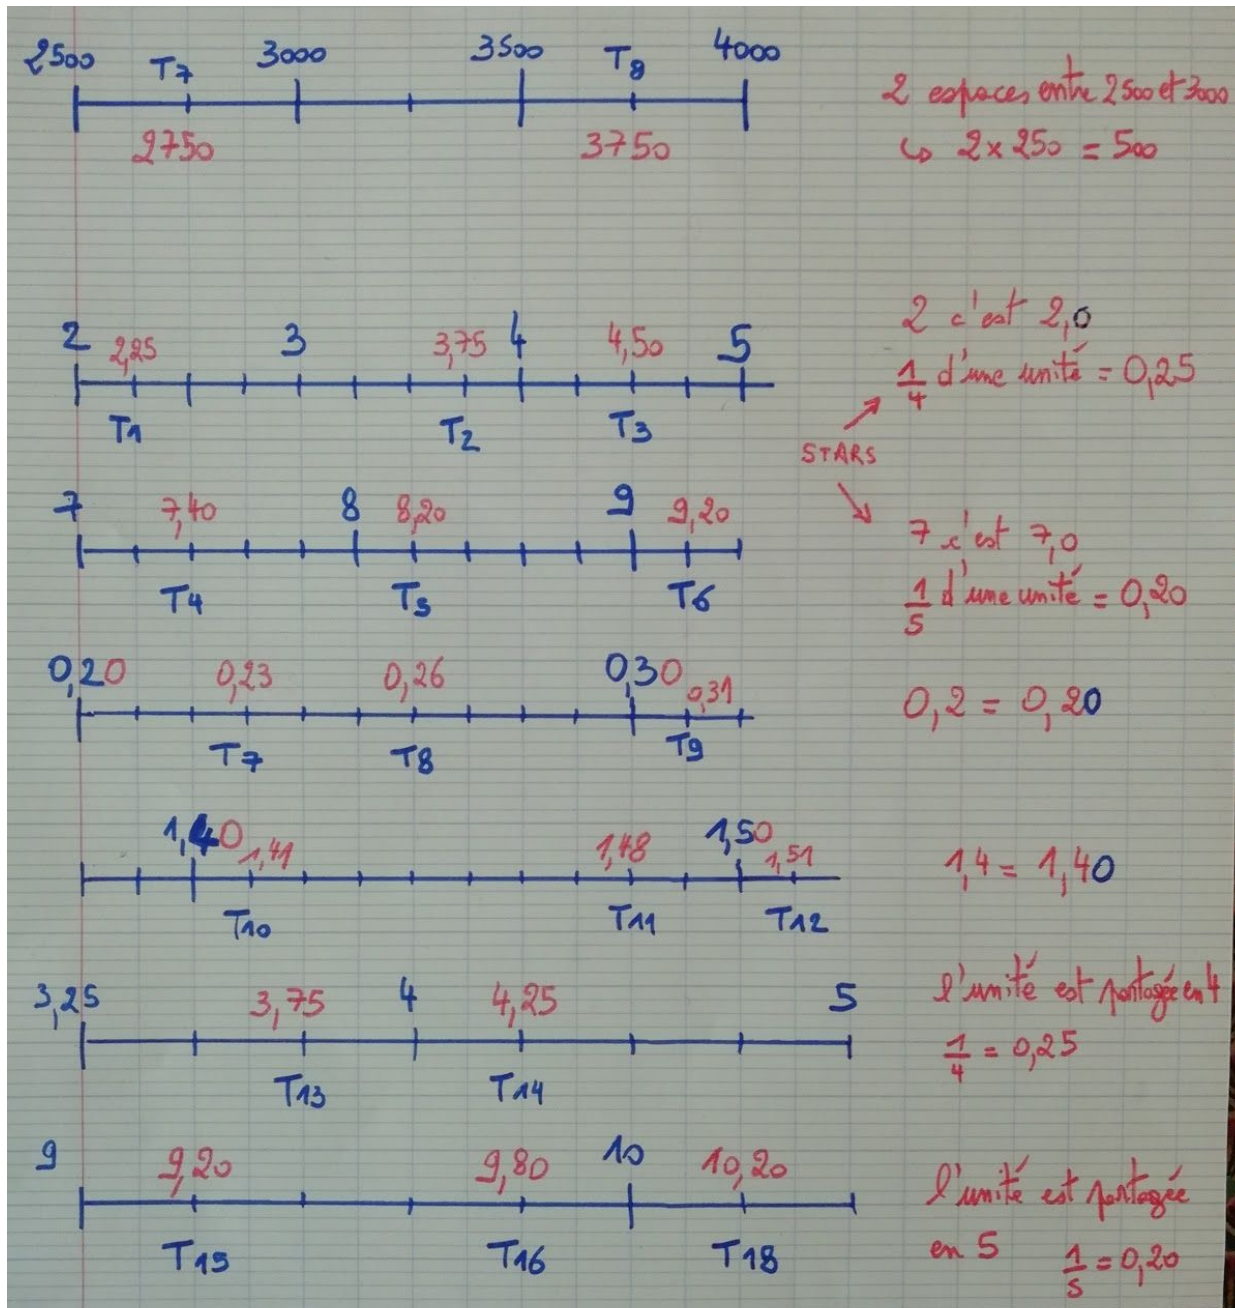 2500 T7 3000 3500 T8 4000
2750 3750
2 espaces entre 2500 et 3000
↳ 2 × 250 = 500
2 2,25 3 3,75 4 4,50 5
T1 T2 T3
2 c'est 2,0
1/4 d'une unité = 0,25
STARS
7 7,40 8 8,20 9 9,20
T4 T5 T6
7 c'est 7,0
1/5 d'une unité = 0,20
0,20 0,23 0,26 0,30 0,31
T7 T8 T9
0,2 = 0,20
1,40 1,41 1,48 1,50 1,51
T10 T11 T12
1,4 = 1,40
3,25 3,75 4 4,25 5
T13 T14
l'unité est partagée en 4
1/4 = 0,25
9 9,20 9,80 10 10,20
T15 T16 T18
l'unité est partagée
en 5 1/5 = 0,20